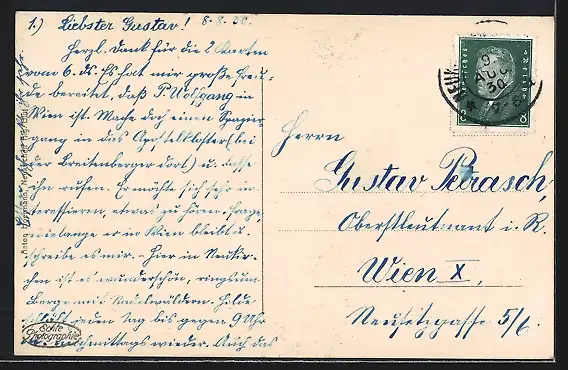 1.) Liebster Gustav! 8.8.30.
Herzl. Dank für die 2 Karten
vom 6. ds. Es hat mir große Freu-
de bereitet, daß P. Wolfgang in
Wien ist. Mache doch einen Spazier-
gang in das Apostelkloster (bei
der Breitenberger dort) u. lasse
ihn rufen. Er möchte sich sehr in-
teressieren, etwas zu hören. Frage,
wielange er in Wien bleibt u.
schreibe es mir. - Hier in Neukir-
chen ist es wunderschön, ringsum
Berge mit Nadelwäldern. Hilde
schläft jeden Tag bis gegen 9 Uhr
u. nachmittags wieder. Auch das
Echte
Photographie
9
AUG
30
8 8
Herrn
Gustav Petrasch,
Oberstleutnant i. R.
Wien X,
Neusetzgasse 5/6.